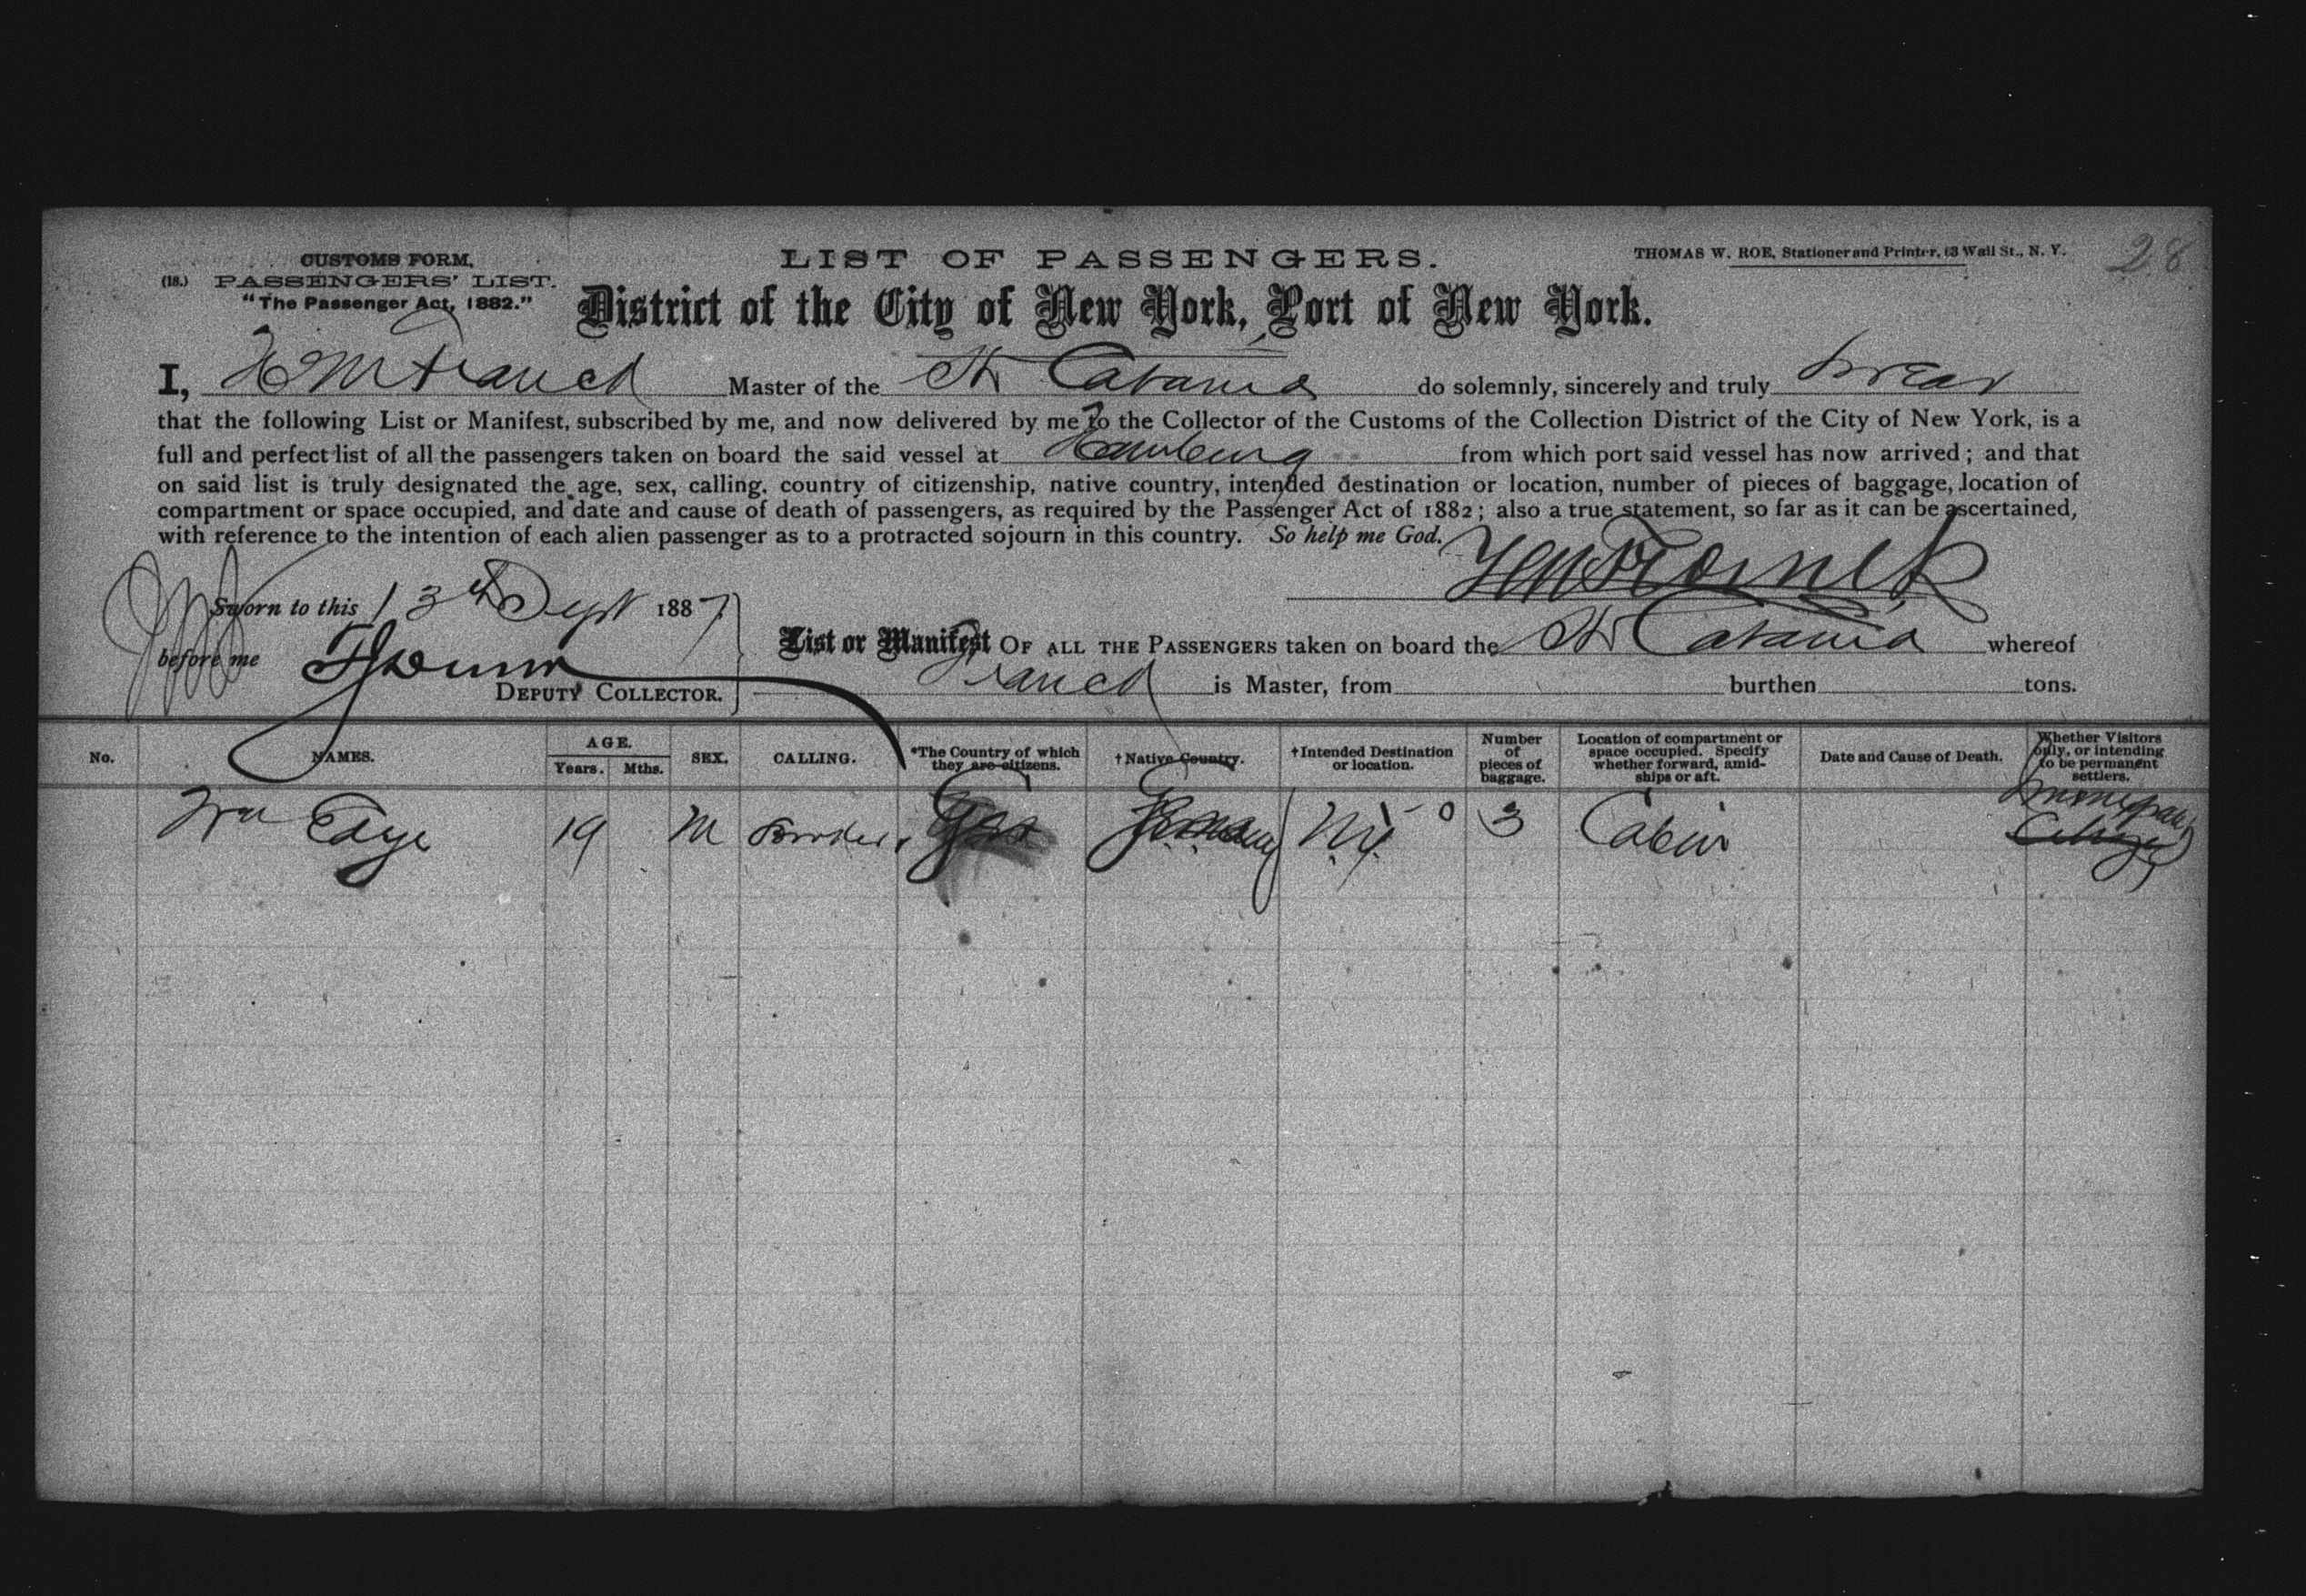 CUSTOMS FORM,
(18.) PASSENGERS' LIST.
"The Passenger Act, 1882."
LIST OF PASSENGERS.
THOMAS W. ROE, Stationer and Printer, 63 Wall St., N. Y.
28
District of the City of New York, Port of New York.
I, Franck Master of the Str Catania do solemnly, sincerely and truly swear
that the following List or Manifest, subscribed by me, and now delivered by me to the Collector of the Customs of the Collection District of the City of New York, is a
full and perfect list of all the passengers taken on board the said vessel at Hamburg from which port said vessel has now arrived; and that
on said list is truly designated the age, sex, calling, country of citizenship, native country, intended destination or location, number of pieces of baggage, location of
compartment or space occupied, and date and cause of death of passengers, as required by the Passenger Act of 1882; also a true statement, so far as it can be ascertained,
with reference to the intention of each alien passenger as to a protracted sojourn in this country. So help me God.
Sworn to this 13th Sept 1887
before me
DEPUTY COLLECTOR.
List or Manifest OF ALL THE PASSENGERS taken on board the Str Catania whereof
Franck is Master, from burthen tons.
No. NAMES. AGE. Years. Mths. SEX. CALLING. *The Country of which they are citizens. †Native Country. †Intended Destination or location. Number of pieces of baggage. Location of compartment or space occupied. Specify whether forward, amidships or aft. Date and Cause of Death. Whether Visitors only, or intending to be permanent settlers.
Wm Edye 19 M Germany N.Y. 3 Cabin